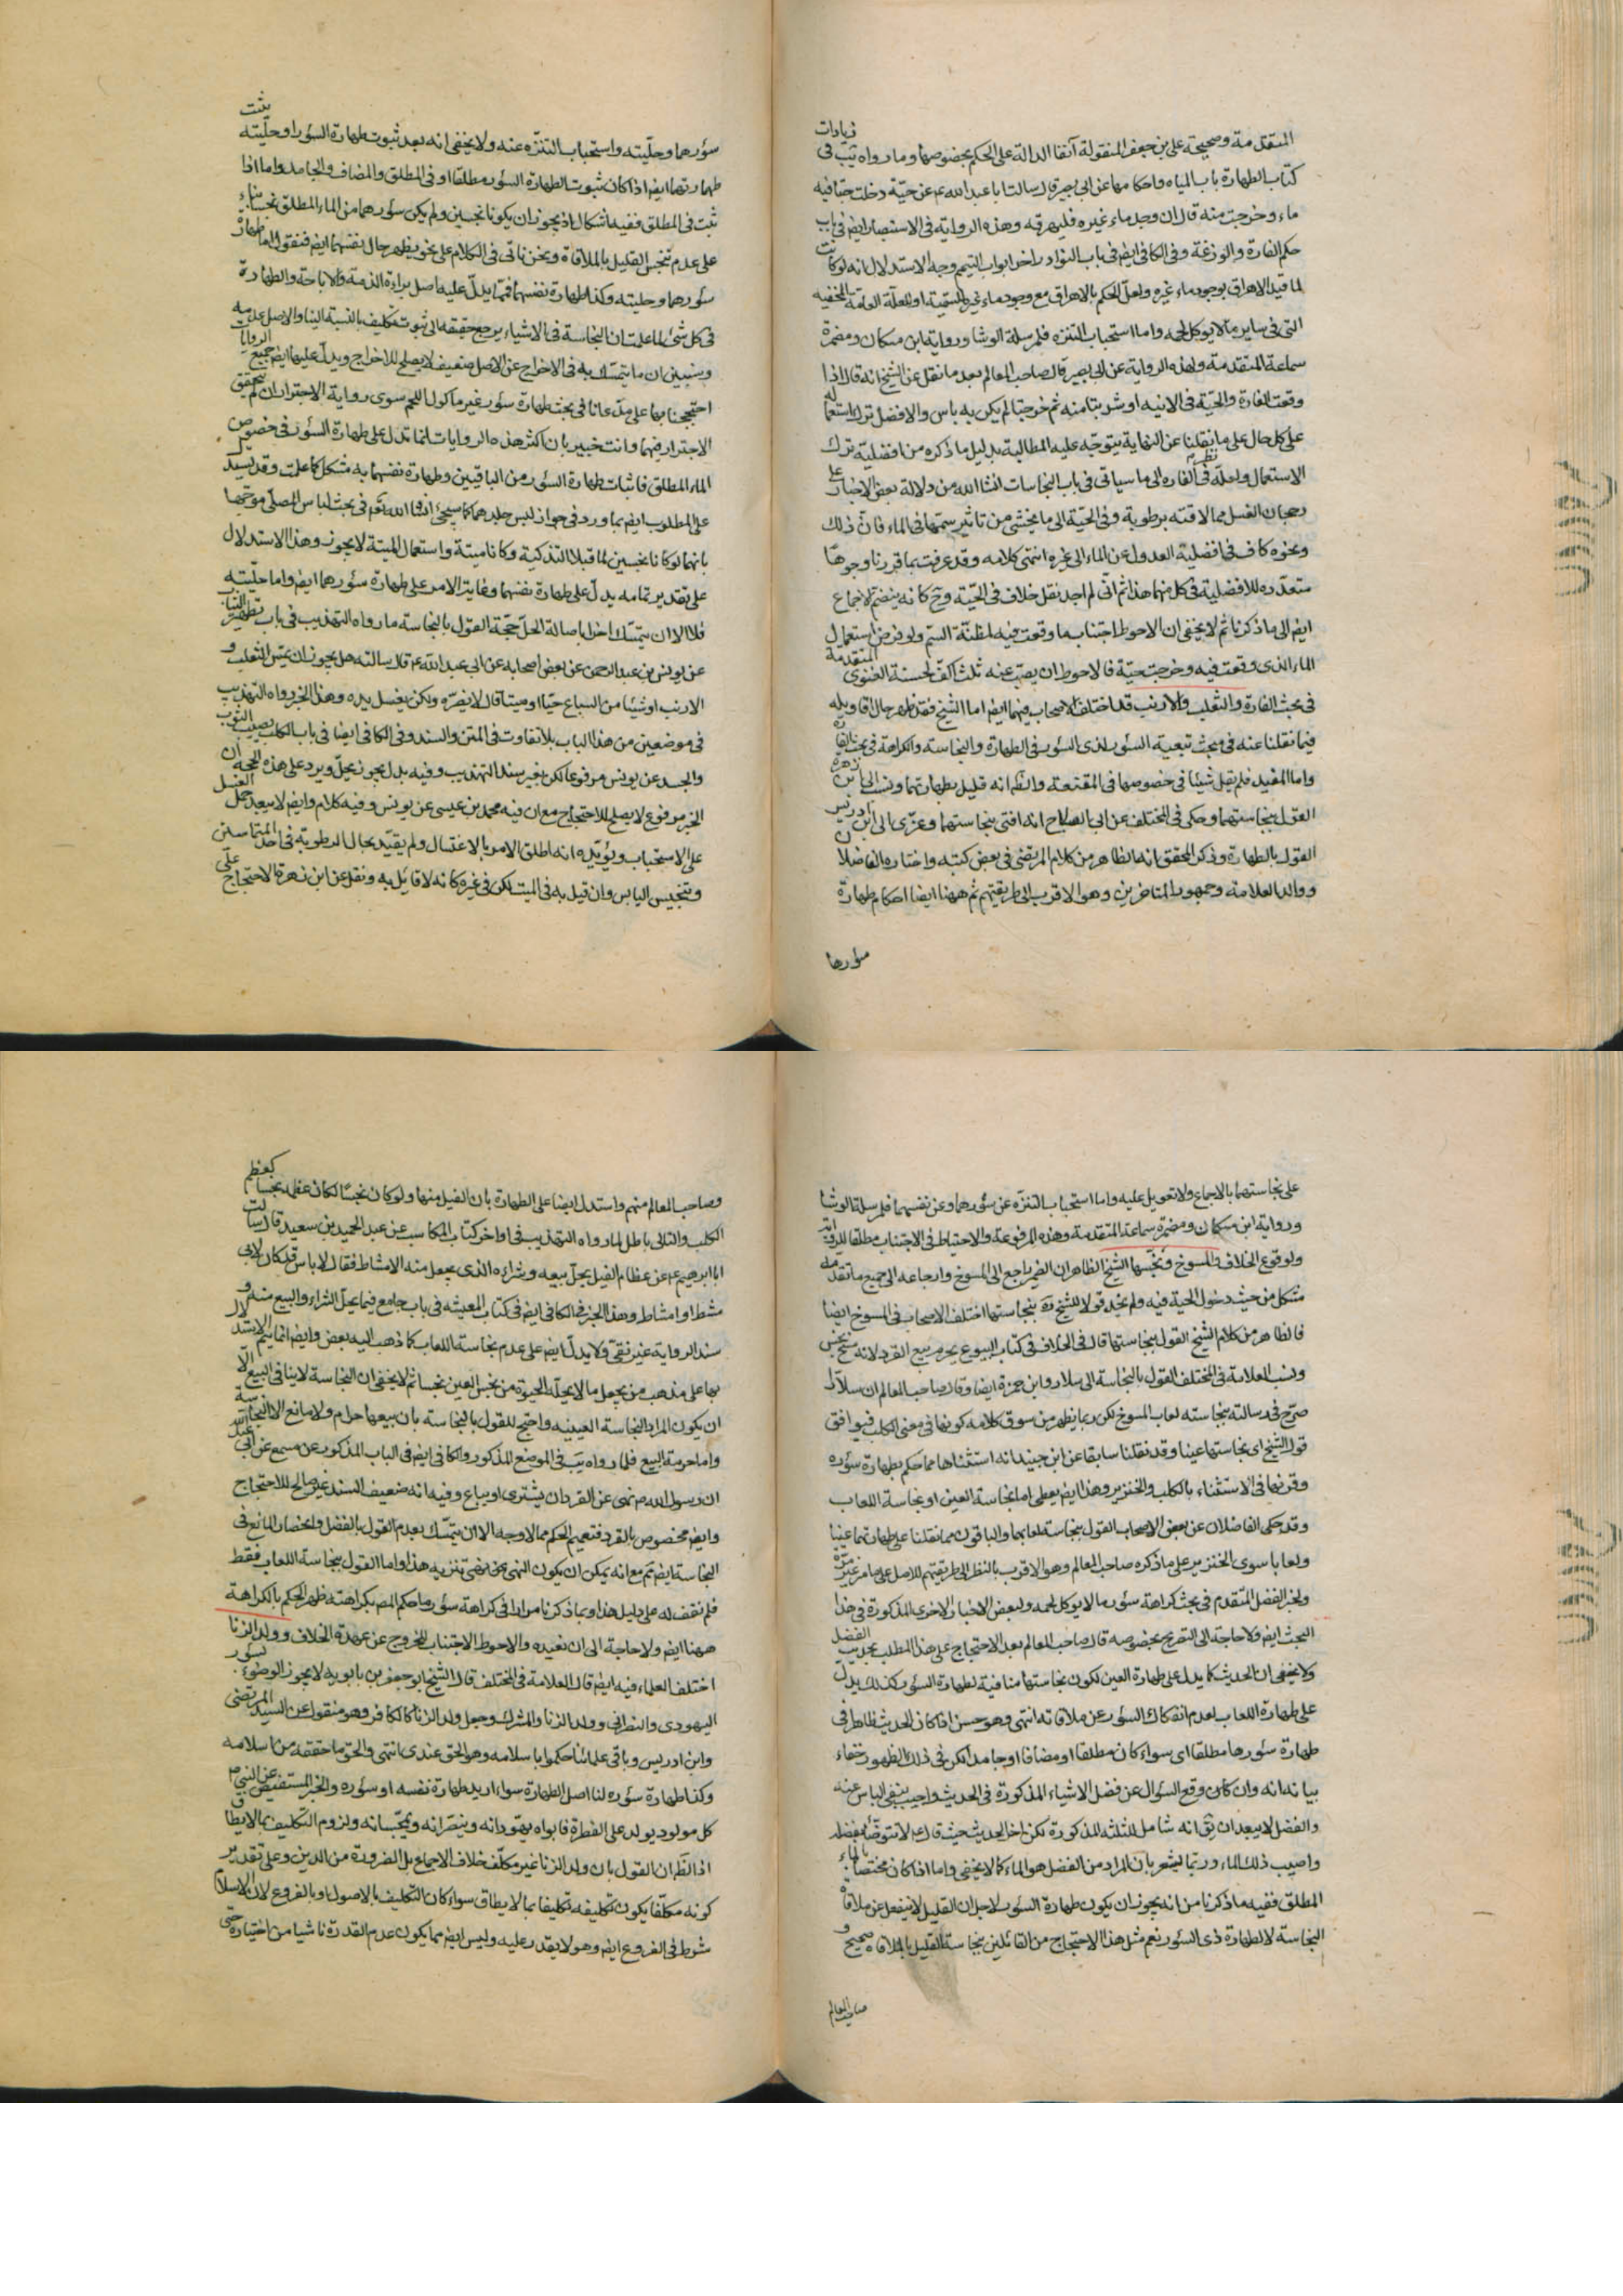 المتقدمة وصحيحة علي بن جعفر المنقولة آنفا الدالة على الحكم بخصوصها وما رواه يب في زيادات
كتاب الطهارة باب المياه واحكامها عن ابي بصير قال سالت ابا عبد الله عم عن حية دخلت حبا فيه
ماء وخرجت منه قال ان وجد ماء غيره فليهرقه وهذه الرواية في الاستبصار ايض في باب
حكم الفارة والوزغة وفي الكافي ايض في باب النوادر اخر ابواب التيمم وجه الاستدلال انه لو كانت
لما قيد الاهراق بوجود ماء غيره ولعل الحكم بالاهراق مع وجود ماء غيره للسمية او للعلة العامة الخفية
التي في ساير ما لا يوكل لحمه واما استحباب التنزه فلمرسلة الوشا ورواية ابن مسكان ومضمرة
سماعة المتقدمة ولهذه الرواية عن ابي بصير قال صاحب المعالم بعد ما نقل عن الشيخ انه قال اذا
وقعت الفارة والحية في الانية او شربتا منه ثم خرجتا لم يكن به باس والافضل ترك استعماله
على كل حال على ما نقلنا عن النهاية يتوجه عليه المطالبة بدليل ما ذكره من افضلية ترك
الاستعمال ولعله نظر في الفارة الى ما سياتي في باب النجاسات انشا الله من دلالة بعض الاخبار على
رجحان الغسل مما لاقته برطوبة وفي الحية الى ما يخشى من تاثير سمها في الماء فان ذلك
ونحوه كاف في افضلية العدول عن الماء الى غيره انتهى كلامه وقد عرفت بما قررنا وجوها
متعدده للافضلية في كل منهما هذا ثم اني لم اجد نقل خلاف في الحية وح كانه ينضم الاجماع
ايض الى ما ذكرنا ثم لا يخفى ان الاحوط اجتناب ما وقعت فيه لمظنة السم ولو فرض استعمال
الماء الذي وقعت فيه وخرجت حية فالاحوط ان يصب عنه ثلث اكف لحسنة الغنوي المتقدمة
في بحث الفارة والثعلب والارنب قد اختلف الاصحاب فيهما ايض اما الشيخ فقد ظهر حال اقاويله
فيما نقلنا عنه في مبحث تبعية السؤر لذي السؤر في الطهارة والنجاسة والكراهة في بحث الفارة
واما المفيد فلم يقل شيئا في خصوصهما في المقنعة والظ انه قايل بطهارتهما ونسب الى ابن زهرة
القول بنجاستهما وحكى في المختلف عن ابي الصلاح انه افتى بنجاستهما وعزى الى ابن ادريس
القول بالطهارة وذكر المحقق انه الظاهر من كلام المرتضى في بعض كتبه واختاره الفاضلان
ووالد العلامة وجمهور المتاخرين وهو الاقرب الى طريقتهم ثم ههنا ايضا احكام طهارة
سؤرهما
سؤرهما وحليته واستحباب التنزه عنه ولا يخفى انه بعد ثبوت طهارة السؤر او حليته ثبت
طهارتهما ايض اذا كان ثبوت الطهارة السؤر مطلقا او في المطلق والمضاف والجامد واما اذا
ثبت في المطلق ففيه اشكال اذ يجوز ان يكونا نجسين ولم يكن سؤرهما من الماء المطلق نجسا بناء
على عدم تنجس القليل بالملاقاة ونحن ناتي في الكلام على نحو يظهر حال نفسهما ايض فنقول اما طهارة
سؤرهما وحليته وكذا طهارة نفسهما فمما يدل عليه اصل براءة الذمة والاباحة والطهارة
في كل شئ لما علمت ان النجاسة في الاشياء يرجع حقيقه الى ثبوت تكليف بالنسبة الينا والاصل عدمه
وسنبين ان ما يتمسك به في الاخراج عن الاصل ضعيف لا يصلح للاخراج ويدل عليها ايض جميع الروايات
احتججنا بها على مدعانا في بحث طهارة سؤر غير ماكول اللحم سوى رواية الاجترار ان لم يتحقق
الاجترار فيهما وانت خبير بان اكثر هذه الروايات انما تدل على طهارة السؤر في خصوص
الماء المطلق فاثبات طهارة السؤر من الباقيين وطهارة نفسهما به مشكل كما علمت وقد يستدل
على المطلوب ايض بما ورد في جواز لبس جلدهما كما سيجئ انشا الله تعم في بحث لباس المصلي موجها
بانهما لو كانا نجسين لما قبلا التذكية وكانا ميتة واستعمال الميتة لا يجوز وهذا الاستدلال
على تقدير تمامه يدل على طهارة نفسهما وغاية الامر على طهارة سؤرهما ايض واما حليته
فلا الا ان يتمسك اخرا باصالة الحل حجة القول بالنجاسة ما رواه التهذيب في باب تطهير الثياب
عن يونس بن عبد الرحمن عن بعض اصحابه عن ابي عبد الله عم قال سالته هل يجوز ان يمس الثعلب و
الارنب او شيئا من السباع حيا او ميتا قال لا يضره ولكن يغسل يده وهذا الخبر رواه التهذيب
في موضعين من هذا الباب بلا تفاوت في المتن والسند وفي الكافي ايضا في باب الكلب يصيب الثوب
والجسد عن يونس مرفوعا لكن بغير سند التهذيب وفيه بدل يجوز يحل ويرد على هذه الحجة ان
الخبر مرفوع لا يصلح للاحتجاج مع ان فيه محمد بن عيسى عن يونس وفيه كلام وايض لا يبعد حمل الغسل
على الاستحباب ويؤيده انه اطلق الامر بالاغتسال ولم يقيد بحال الرطوبة في احد المتماسين
وتنجيس اليابس وان قيل به في الميت لكن في غيره كانه لا قايل به ونقل عن ابن زهرة الاحتجاج على
على نجاستهما بالاجماع ولا تعويل عليه واما استحباب التنزه عن سؤرهما وعن نفسهما فلمرسلة الوشا
ورواية ابن مسكان ومضمرة سماعة المتقدمة وهذه المرفوعة والاحتياط في الاجتناب مطلقا للرواية
ولوقوع الخلاف والمسوخ ونجسها الشيخ الظاهر ان الضمير راجع الى المسوخ وارجاعه الى جميع ما تقدمه
مشكل من حيث دخول الحية فيه ولم نجد قولا للشيخ ره بنجاستها اختلف الاصحاب في المسوخ ايضا
فالظاهر من كلام الشيخ القول بنجاستها قال في الخلاف في كتاب البيوع يحرم بيع القرد لانه مسخ نجس
ونسب العلامة في المختلف القول بالنجاسة الى سلار وابن حمزة ايضا وقال صاحب المعالم ان سلارا
صرح في رسالته بنجاسته لعاب المسوخ لكن ربما يظهر من سوق كلامه كونها في معنى الكلب فيوافق
قول الشيخ اي نجاستها عينا وقد نقلنا سابقا عن ابن جنيد انه استثناها مما حكم بطهارة سؤره
وقرنها في الاستثناء بالكلب والخنزير وهذا ايض يعطي اما نجاسة العين او نجاسة اللعاب
وقد حكى الفاضلان عن بعض الاصحاب القول بنجاسة لعابها والباقون مما نقلنا على طهارتها عينا
ولعابا سوى الخنزير على ما ذكره صاحب المعالم وهو الاقرب بالنظر الى طريقتهم للاصل على ما مر غير مرة
ولخبر الفضل المتقدم في بحث كراهة سؤر ما لا يوكل لحمه ولبعض الاخبار الاخرى المذكورة في هذا
البحث ايض ولا حاجة الى التصريح بخصوصه قال صاحب المعالم بعد الاحتجاج على هذا المطلب بحديث الفضل
ولا يخفى ان الحديث كما يدل على طهارة العين لكون نجاستها منافية لطهارة السؤر كذلك يدل
على طهارة اللعاب لعدم انفكاك السؤر عن ملاقاته انتهى وهو حسن اذا كان الحديث ظاهرا في
طهارة سؤرها مطلقا اي سواء كان مطلقا او مضافا او جامدا لكن في ذلك الظهور خفاء
بيانه انه وان كان وقع السؤال عن فضل الاشياء المذكورة في الحديث واجيب بنفي الباس عنه
والفضل لا يبعد ان يق انه شامل للثلثة المذكورة لكن اخر الحديث حيث قال ع لا تتوضأ بفضله
واصبب ذلك الماء وربما يشعر بان المراد من الفضل هو الماء كما لا يخفى واما اذا كان مختصا بالماء
المطلق ففيه ما ذكرنا من انه يجوز ان يكون طهارة السؤر لاجل ان القليل لا ينفعل عن ملاقاة
النجاسة لا لطهارة ذي السؤر نعم مثل هذا الاحتجاج من القائلين بنجاسة القليل بالملاقاة صحيح و
صاحب المعالم
وصاحب المعالم منهم واستدل ايضا على الطهارة بان الفيل منها ولو كان نجسا لكان عظمه نجسا كعظم
الكلب والتالي باطل لما رواه التهذيب في اواخر كتاب المكاسب عن عبد الحميد بن سعيد قال سالت
ابا ابرهيم عم عن عظام الفيل يحل بيعه وشراءه الذي يجعل منه الامشاط فقال لا باس قد كان لابي
مشط او امشاط وهذا الخبر في الكافي ايض في كتاب المعيشه في باب جامع فيما يحل الشراء والبيع منه و
سند الرواية غير نقي ولا يدل ايض على عدم نجاسة اللعاب كما ذهب اليه بعض وايض انما يتم الاستدلال
بها على مذهب من يجعل ما لا يحله الحيوة من نجس العين نجسا ثم لا يخفى ان النجاسة لا ينافي البيع الا
ان يكون المراد النجاسة العينيه واحتج للقول بالنجاسة بان بيعها حرام ولا مانع الا النجاسة
واما حرمة البيع فلما رواه يب في الموضع المذكور والكافي ايض في الباب المذكور عن مسمع عن ابي عبد الله
ان رسول الله ص نهى عن القردان يشترى او يباع وفيه انه ضعيف السند غير صالح للاحتجاج
وايض مخصوص بالقرد فتعميم الحكم مما لا وجه الا ان يتمسك بعدم القول بالفصل وانحصار المانع في
النجاسة ايض تم مع انه يمكن ان يكون النهي عن نهي تنزيه هذا واما القول بنجاسة اللعاب فقط
فلم نقف له على دليل هذا وبما ذكرنا مرارا في كراهة سؤر ما حكم المص بكراهته ظهر الحكم بالكراهة
ههنا ايض ولا حاجة الى ان نعيده والاحوط الاجتناب للخروج عن عهدة الخلاف وولد الزنا
اختلف العلماء فيه ايض قال العلامة في المختلف قال الشيخ ابو جعفر بن بابويه لا يجوز الوضوء بسؤر
اليهودي والنصراني وولد الزنا والمشرك وجعل ولد الزنا كالكافر وهو منقول عن السيد المرتضى
وابن ادريس وباقي علمائنا حكموا باسلامه وهو الحق عندي انتهى والحق ما حققه من اسلامه
وكذا طهارة سؤره لنا اصل الطهارة سواء اريد طهارة نفسه او سؤره والخبر المستفيض عن النبي ص
كل مولود يولد على الفطرة فابواه يهودانه وينصرانه ويمجسانه ولزوم التكليف بما لا يطاق
اذ الظ ان القول بان ولد الزنا غير مكلف خلاف الاجماع بل الضرورة من الدين وعلى تقدير
كونه مكلفا يكون تكليفه تكليفا بما لا يطاق سواء كان التكليف بالاصول او بالفروع لان الاسلام
شرط في الفروع ايض وهو لا يقدر عليه وليس ايض مما يكون عدم القدرة ناشيا من اختياره حتى